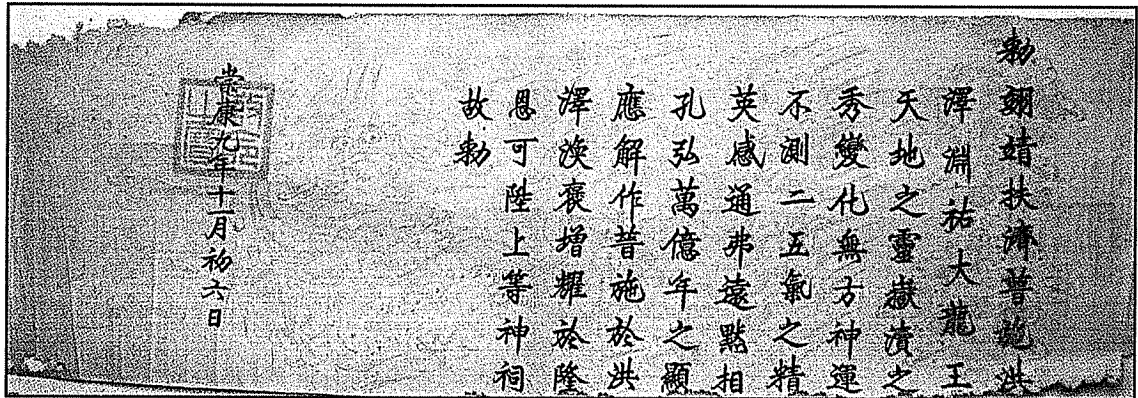 勅翊靖扶濟普施洪
澤淵祐大龍王
天地之靈嶽瀆之
秀變化無方神運
不測二五氣之精
英感通弗遠黙相
孔弘萬億年之顯
應解作普施於洪
澤渙褒增耀於隆
恩可陞上等神祠
故勅
崇康九年十一月初六日